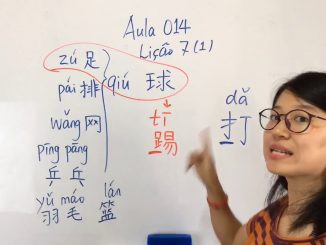 Aula 014
Lição 7(1)
zú 足
pái 排 qiú 球
wǎng 网
pīng pāng
乒乓
yǔ máo lán
羽毛 篮
tī
踢
dǎ
打